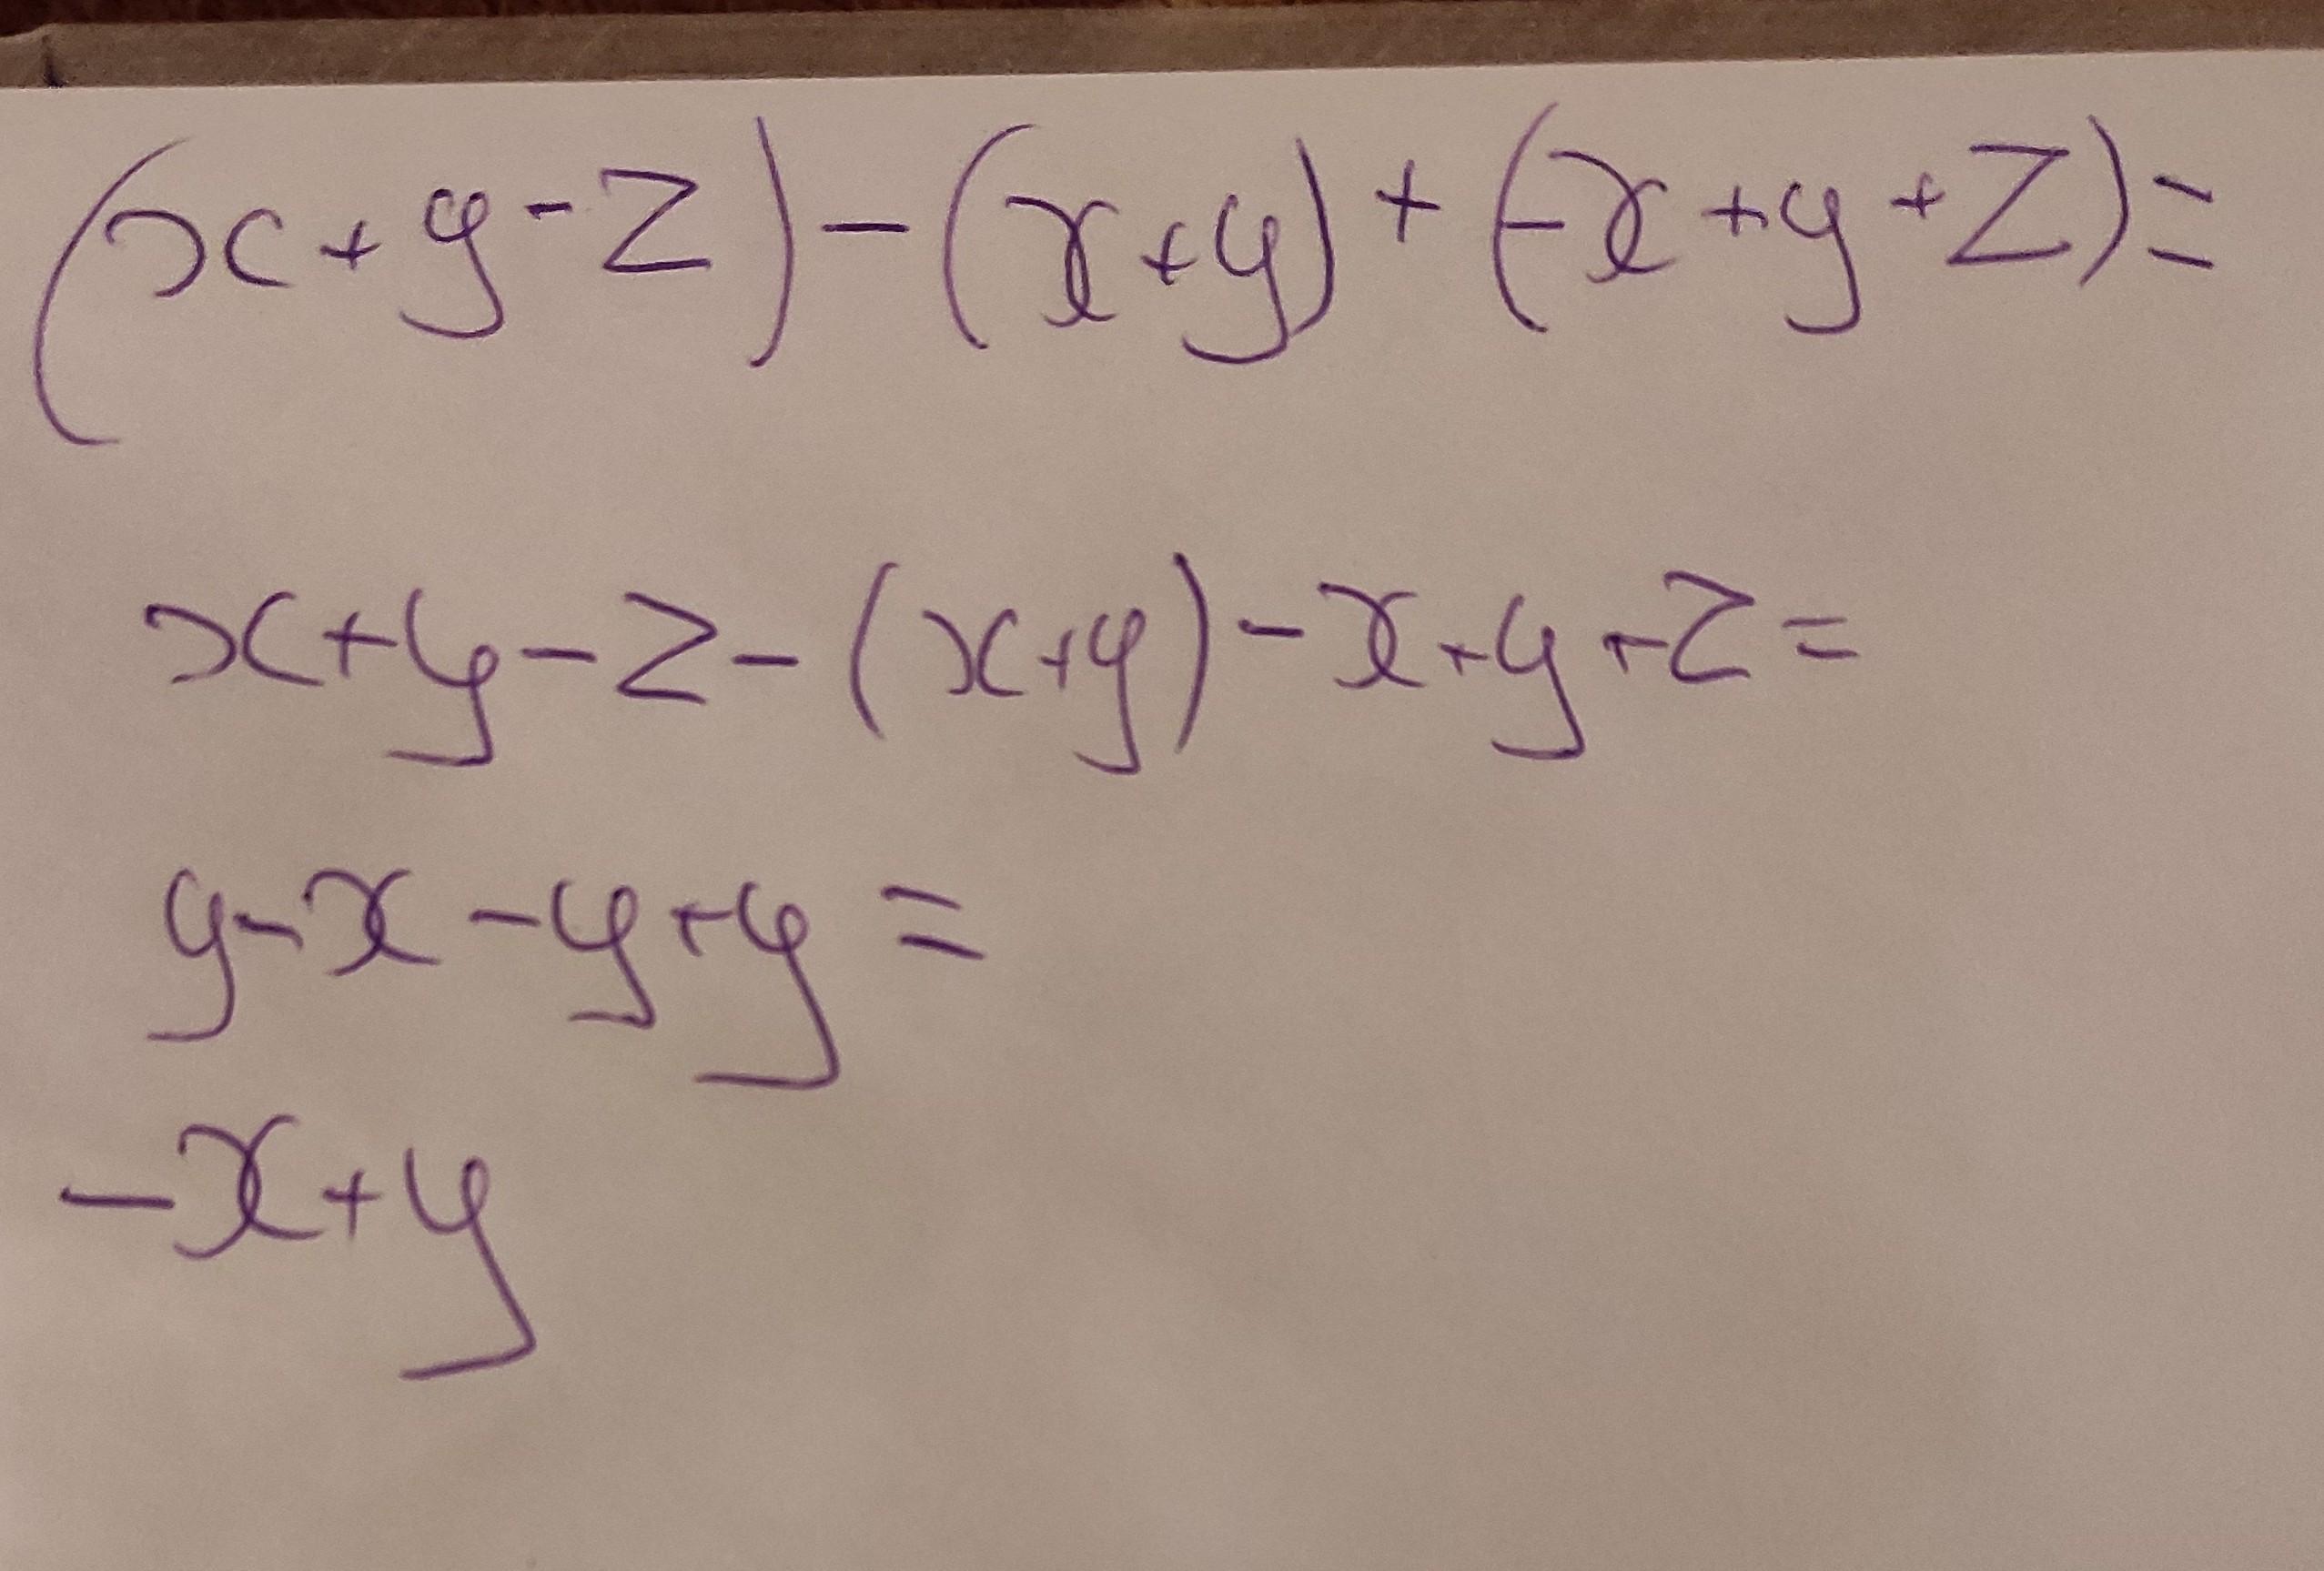 (x+y-z)-(x+y)+(-x+y+z)=
x+y-z-(x+y)-x+y+z=
y-x-y+y=
-x+y